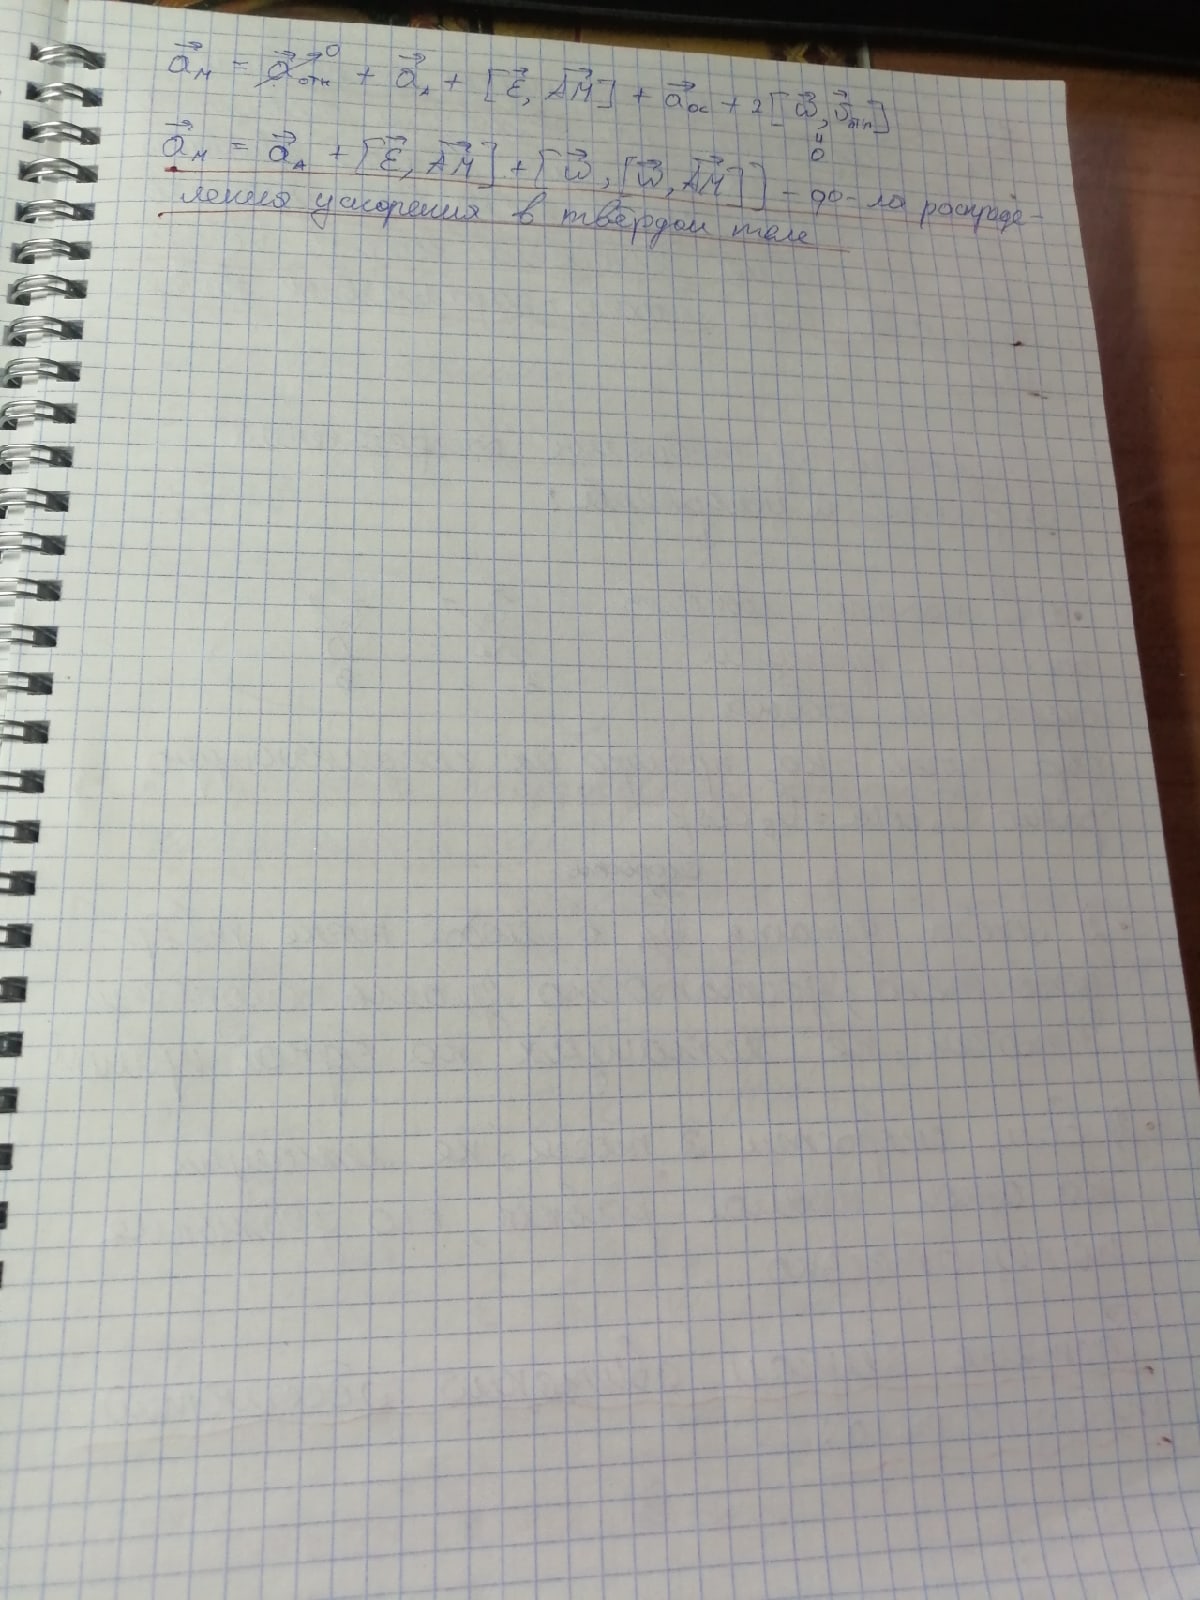 a⃗_M = a⃗_отн⁰ + a⃗_A + [ε⃗, AM⃗] + a⃗_ос + 2[ω⃗, υ⃗_отн]
= 0
a⃗_M = a⃗_A + [ε⃗, AM⃗] + [ω⃗, [ω⃗, AM⃗]] – фо-ла распреде-
ления ускорения в твёрдом теле